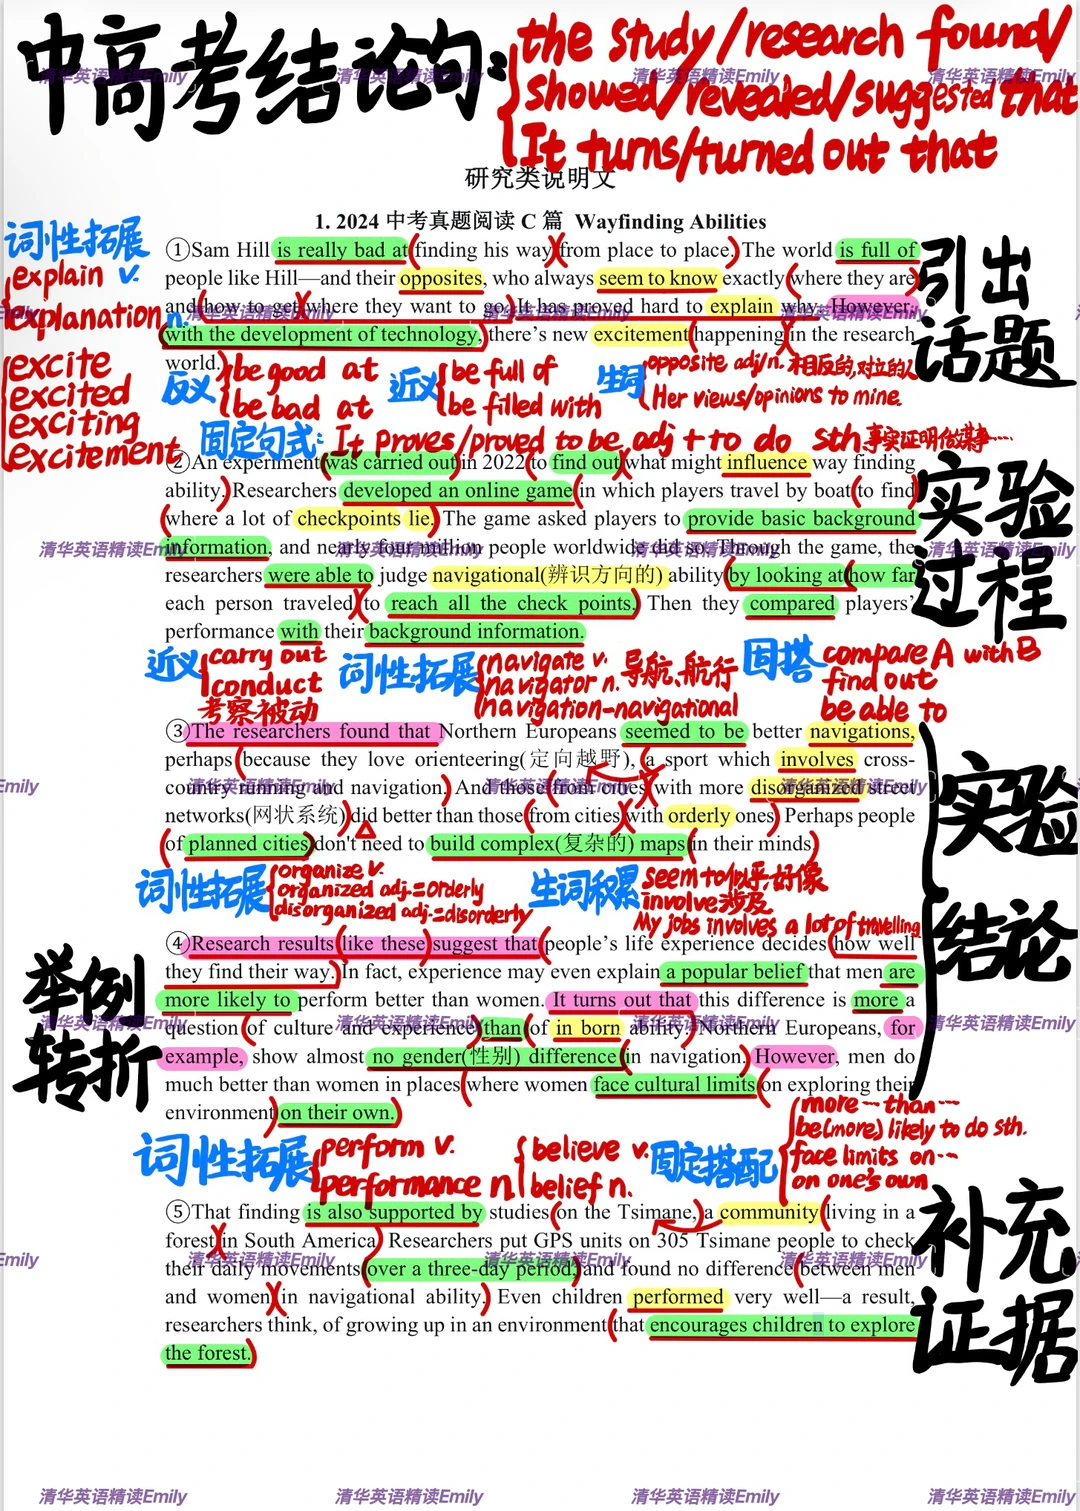 中高考结论句:
the study/research found/
showed/revealed/suggested that
It turns/turned out that
研究类说明文
1. 2024 中考真题阅读 C 篇 Wayfinding Abilities
词性拓展
explain v.
explanation n.
excite
excited
exciting
excitement
①Sam Hill is really bad at finding his way from place to place. The world is full of
people like Hill—and their opposites, who always seem to know exactly where they are
and how to get where they want to go. It has proved hard to explain why. However,
with the development of technology, there's new excitement happening in the research
world.
引出
话题
反义
be good at
be bad at
近义
be full of
be filled with
生词
opposite adj/n. 相反的,对立的
Her views/opinions to mine.
固定句式:
It proves/proved to be adj + to do sth 事实证明做某事…
②An experiment was carried out in 2022 to find out what might influence way finding
ability. Researchers developed an online game in which players travel by boat to find
where a lot of checkpoints lie. The game asked players to provide basic background
information, and nearly four million people worldwide did so. Through the game, the
researchers were able to judge navigational(辨识方向的) ability by looking at how far
each person traveled to reach all the check points. Then they compared players'
performance with their background information.
实验
过程
近义
carry out
conduct
考察被动
词性拓展
navigate v. 导航、航行
navigator n.
navigation-navigational
固搭
compare A with B
find out
be able to
③The researchers found that Northern Europeans seemed to be better navigations,
perhaps because they love orienteering(定向越野), a sport which involves cross-
country running and navigation. And those from cities with more disorganized street
networks(网状系统) did better than those from cities with orderly ones. Perhaps people
of planned cities don't need to build complex(复杂的) maps in their minds.
实验
结论
词性拓展
organize v.
organized adj.=orderly
disorganized adj.=disorderly
生词积累
seem to似乎,好像
involve涉及
My jobs involves a lot of travelling
④Research results like these suggest that people's life experience decides how well
they find their way. In fact, experience may even explain a popular belief that men are
more likely to perform better than women. It turns out that this difference is more a
question of culture and experience than of in born ability. Northern Europeans, for
example, show almost no gender(性别) difference in navigation. However, men do
much better than women in places where women face cultural limits on exploring their
environment on their own.
举例
转折
词性拓展
perform v.
performance n.
believe v.
belief n.
固定搭配
more…than…
be(more) likely to do sth.
face limits on…
on one's own
⑤That finding is also supported by studies on the Tsimane, a community living in a
forest in South America. Researchers put GPS units on 305 Tsimane people to check
their daily movements over a three-day period, and found no difference between men
and women in navigational ability. Even children performed very well—a result,
researchers think, of growing up in an environment that encourages children to explore
the forest.
补充
证据
清华英语精读Emily